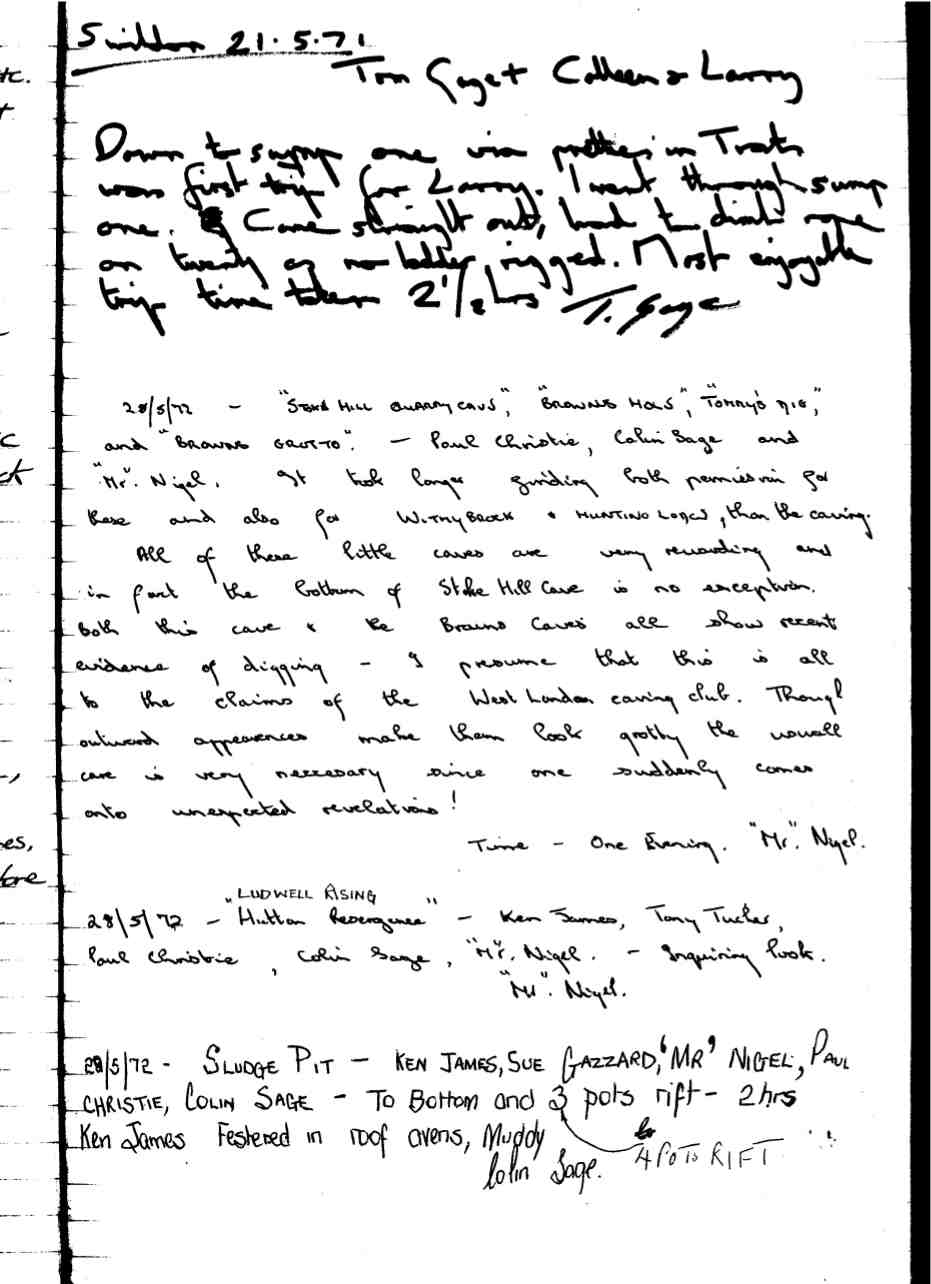 Swildon 21.5.71
Tom Gage + Colleen & Larry
Down to sump one via potteries in Trats
was first trip for Larry. I went through sump
one. Came straight out, had to climb rope
on twenty as no ladder rigged. Most enjoyable
trip time taken 2 1/2 hrs T. Gage
28/5/72 - "STOKE HILL QUARRY CAVE", "BROWNS HOLE", "TOMMY'S DIG",
and "BROWNS GROTTO". - Paul Christie, Colin Sage and
"Mr". Nigel. It took longer finding both permission for
these and also for WITHYBROOK & HUNTING LODGE, than the caving.
All of these little caves are very rewarding and
in fact the bottom of Stoke Hill Cave is no exception.
Both this cave & the Browns Caves all show recent
evidence of digging - I presume that this is all
to the claims of the West London caving club. Though
outward appearences make them look grotty the usuall
care is very neccesary since one suddenly comes
onto unexpected revelations!
Time - One Evening. "Mr". Nigel.
"LUDWELL RISING
28/5/72 - Hutton Resergence" - Ken James, Tony Tucker,
Paul Christie, Colin Sage, "Mr". Nigel. - Inquiring look.
"Mr". Nigel.
29/5/72 - SLUDGE PIT - KEN JAMES, SUE GAZZARD, 'MR' NIGEL, PAUL
CHRISTIE, COLIN SAGE - To Bottom and 3 pots rift - 2hrs
Ken James Festered in roof avens, Muddy
4 POTS RIFT
Colin Sage.